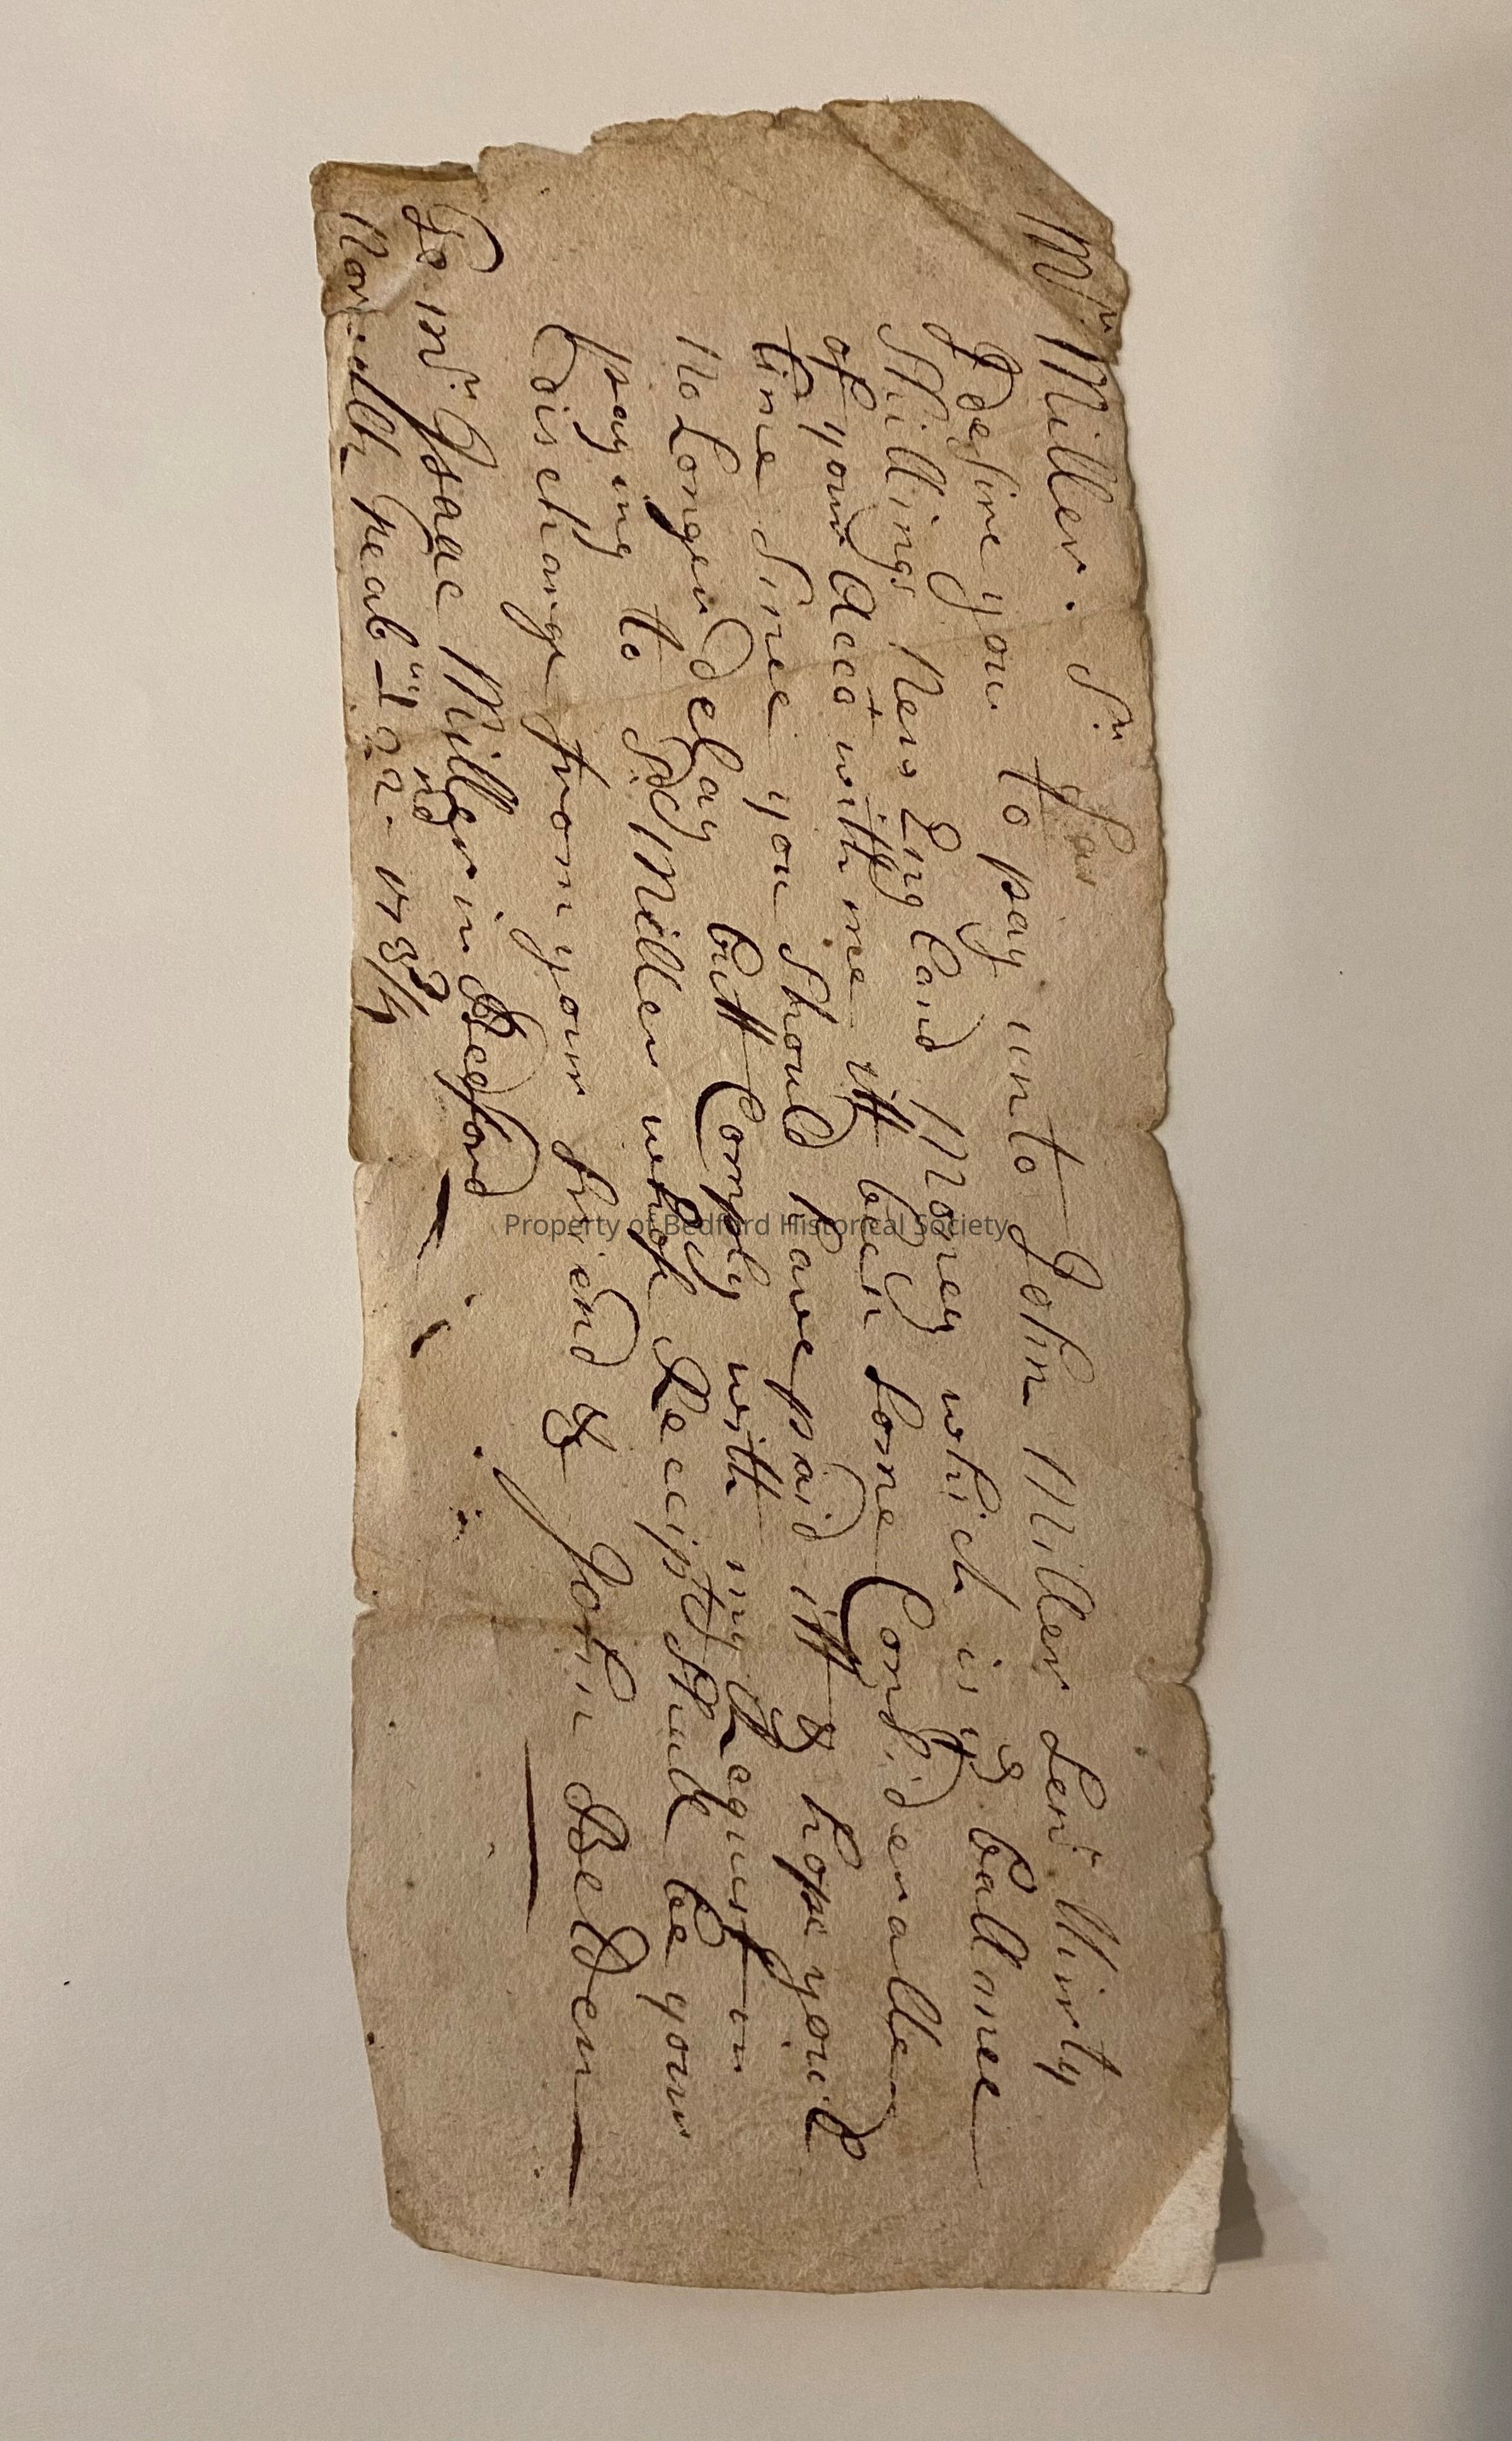 Mr Miller. Sr
I desire you to pay unto John Miller Senr thirty
Shillings New England Money which is ye ballance
of your Acco.t with me itt been some Considerable
time since you should have paid itt & hope you'l
No Longer delay butt Comply with my Request in
paying to Sd Miller whose Receipt shall be your
discharge from your friend &
John Belden
To Mr Isaac Miller in Bedford
Norwalk 22nd 1738/9
Property of Bedford Historical Society